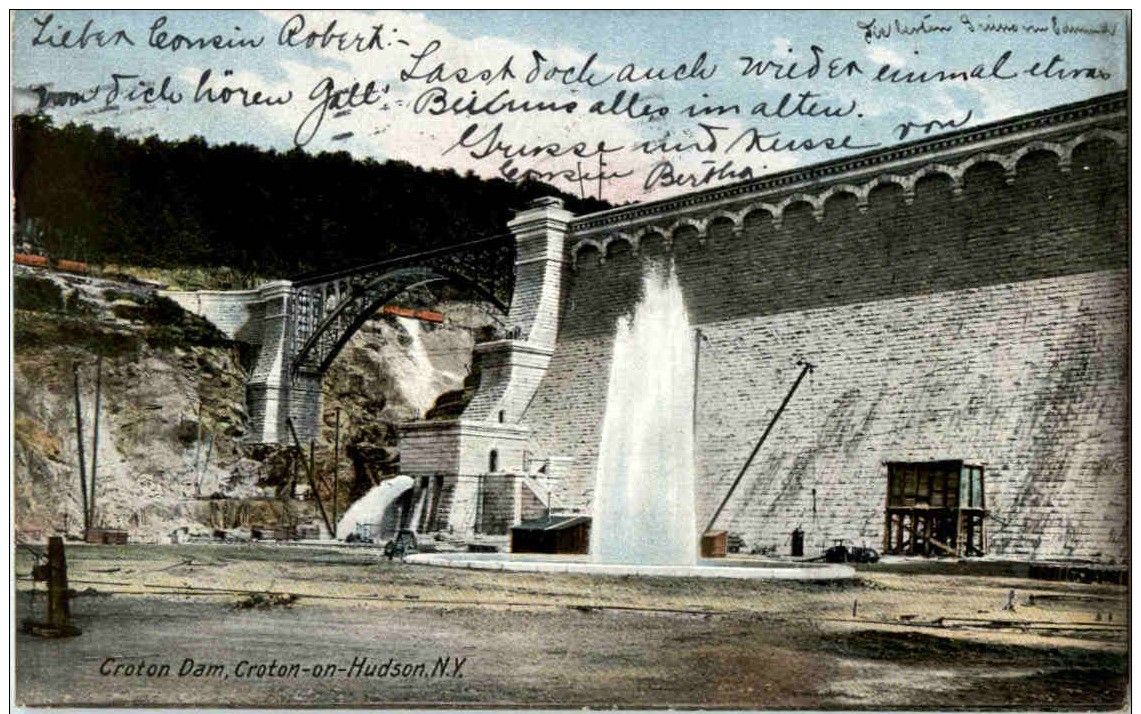 Lieber Cousin Robert:-
Lasst doch auch wieder einmal etwas
von Dich hören Gell! Bei uns alles im alten.
Grüsse und Küsse von
Cousin Bertha
Croton Dam, Croton-on-Hudson, N.Y.